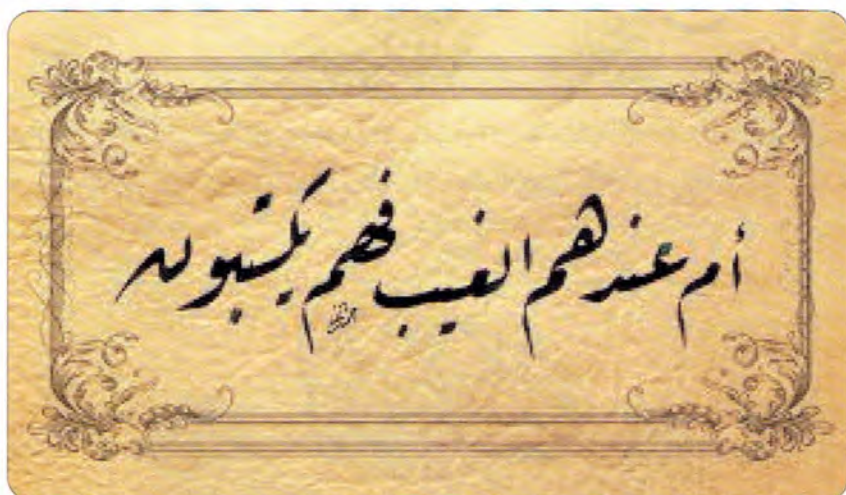 أم عندهم الغيب فهم يكتبون